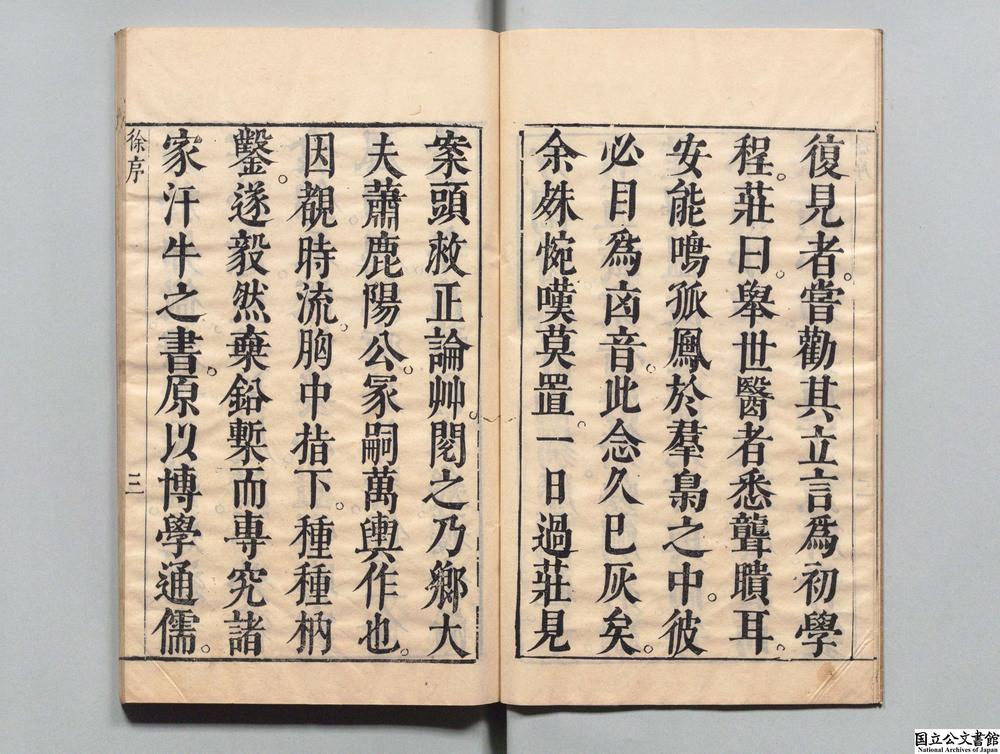 復見者。嘗勸其立言爲初學
程。莊曰。舉世醫者悉聾瞶耳。
安能鳴孤鳳於羣梟之中。彼
必目爲凶音。此念久已灰矣。
余殊惋嘆莫置。一日過莊見
案頭救正論艸。閱之乃鄉大
夫蕭鹿陽公。冢嗣萬輿作也。
因觀時流。胸中指下。種種枘
鑿。遂毅然棄鉛槧而專究諸
家汗牛之書。原以博學通儒。
徐序
三
国立公文書館
National Archives of Japan